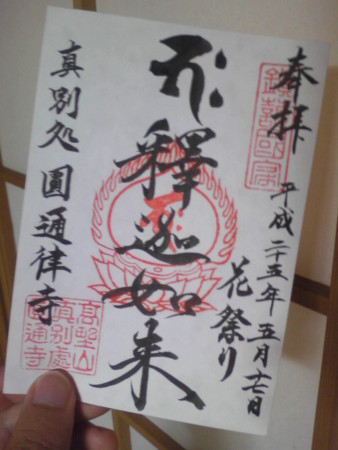 奉拝
平成二十五年五月十七日
花祭り
釋迦如来
真別処 圓通律寺
高野山
真別處
圓通寺